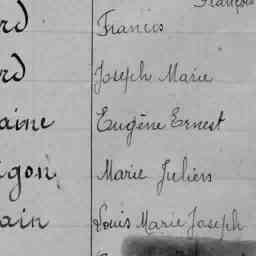 François
rd Francis
rd Joseph Marie
aine Eugène Ernest
igon Marie Julien
ain Louis Marie Joseph